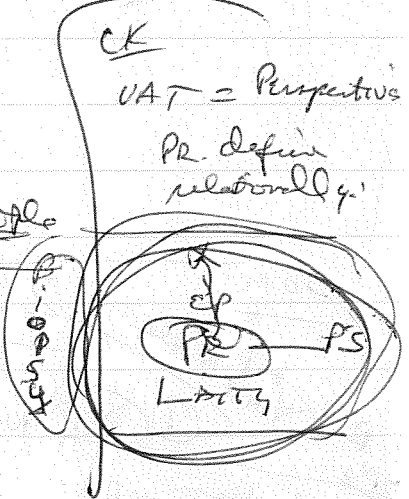 CK
VAT = Perspectives
PR. define
relationally.
ople
EP
PR — PS
LAITY